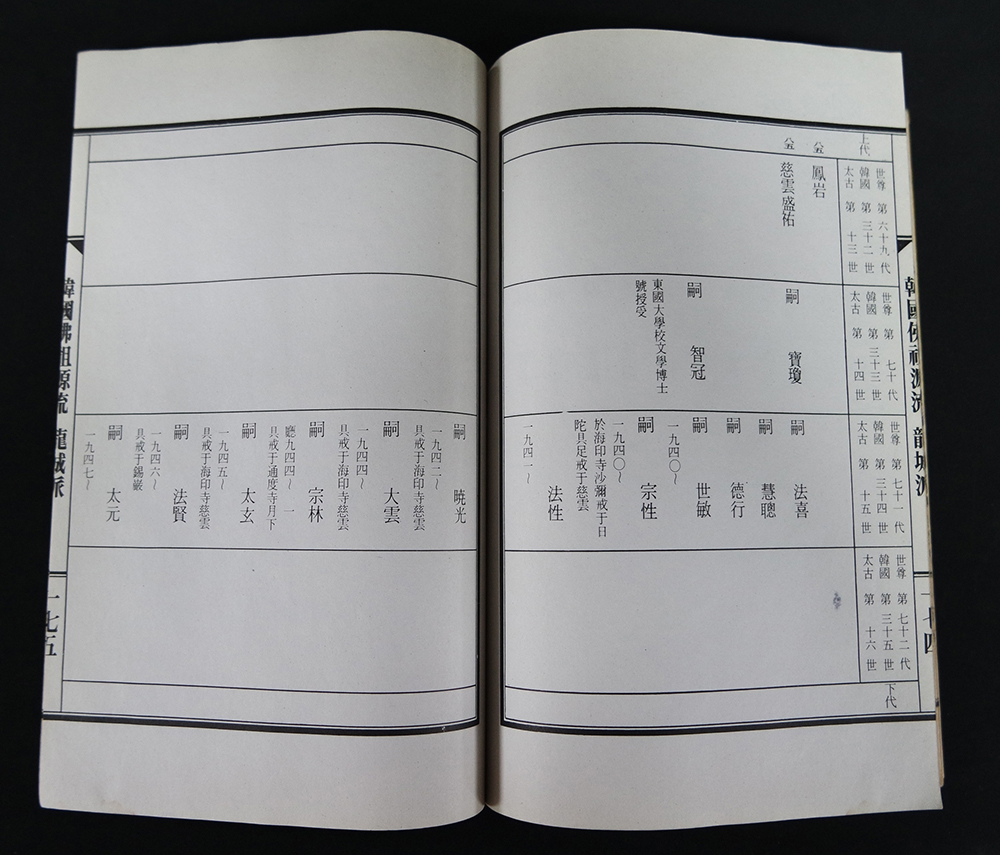 韓國佛祖源流 龍城派 一七四
上代
世尊 第 六十九代
韓國 第 三十二世
太古 第 十三世
鳳岩
慈雲盛祐
世尊 第 七十代
韓國 第 三十三世
太古 第 十四世
嗣 寶瓊
嗣 智冠
東國大學校文學博士
號授受
世尊 第 七十一代
韓國 第 三十四世
太古 第 十五世
嗣 法喜
嗣 慧聰
嗣 德行
嗣 世敏
一九四〇～
嗣 宗性
一九四〇～
於海印寺沙彌戒于日
陀具足戒于慈雲
嗣 法性
一九四一～
世尊 第 七十二代
韓國 第 三十五世
太古 第 十六世
下代
嗣 暁光
一九四二～
具戒于海印寺慈雲
嗣 大雲
一九四四～
具戒于海印寺慈雲
嗣 宗林
廳九四四～ 一
具戒于通度寺月下
嗣 太玄
一九四五～
具戒于海印寺慈雲
嗣 法賢
一九四六～
具戒于錫巖
嗣 太元
一九四七～
韓國佛祖源流 龍城派 一七五